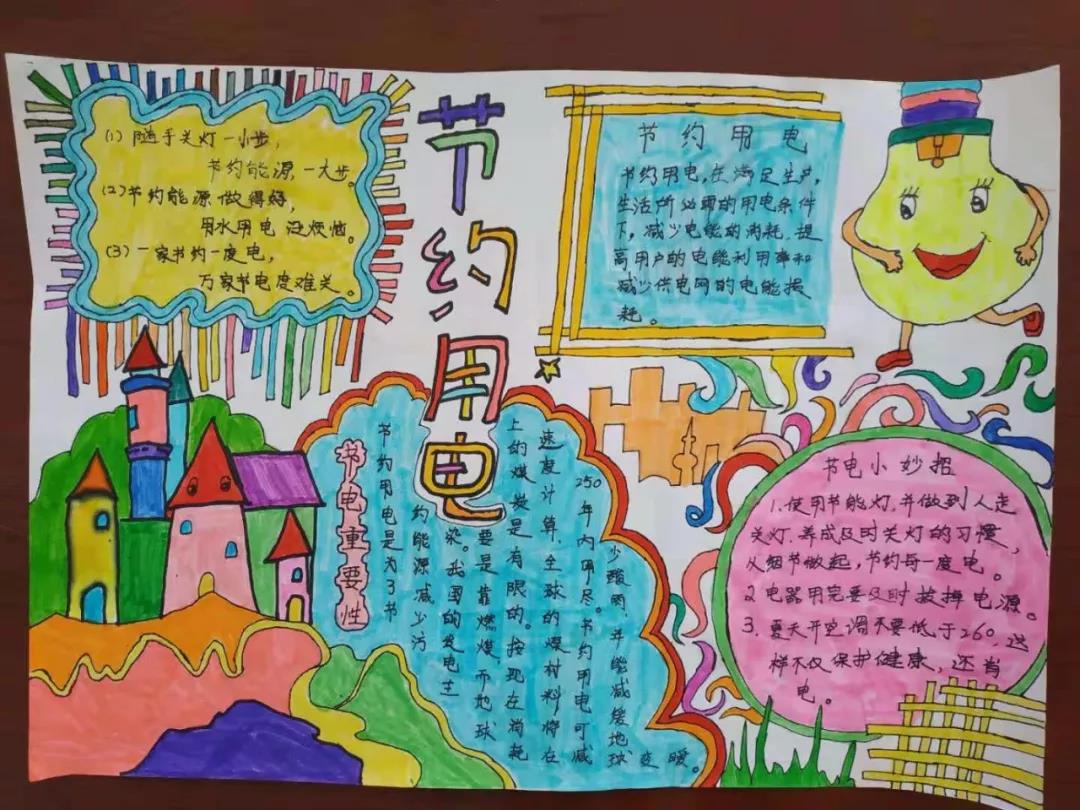 (1) 随手关灯一小步,
节约能源,一大步。
(2)节约能源做得好,
用水用电没烦恼。
(3)一家节约一度电,
万家节电度难关。
节约用电
节约用电
节约用电,在满足生产,
生活所必需的用电条件
下,减少电能的消耗.提
高用户的电能利用率和
减少供电网的电能损
耗。
节电重要性
节约用电是为了节
约能源减少污
染。我国的发电主
要是靠燃煤,而地球
上的煤炭是有限的。按现在消耗
速度计算,全球的煤材料将在
250年内用尽。节约用电可减
少酸雨,并能减缓地球变暖。
节电小妙招
1.使用节能灯,并做到人走
关灯.养成及时关灯的习惯,
从细节做起,节约每一度电。
2.电器用完要及时拔掉电源。
3.夏天开空调不要低于260,这
样不仅保护健康,还省
电。